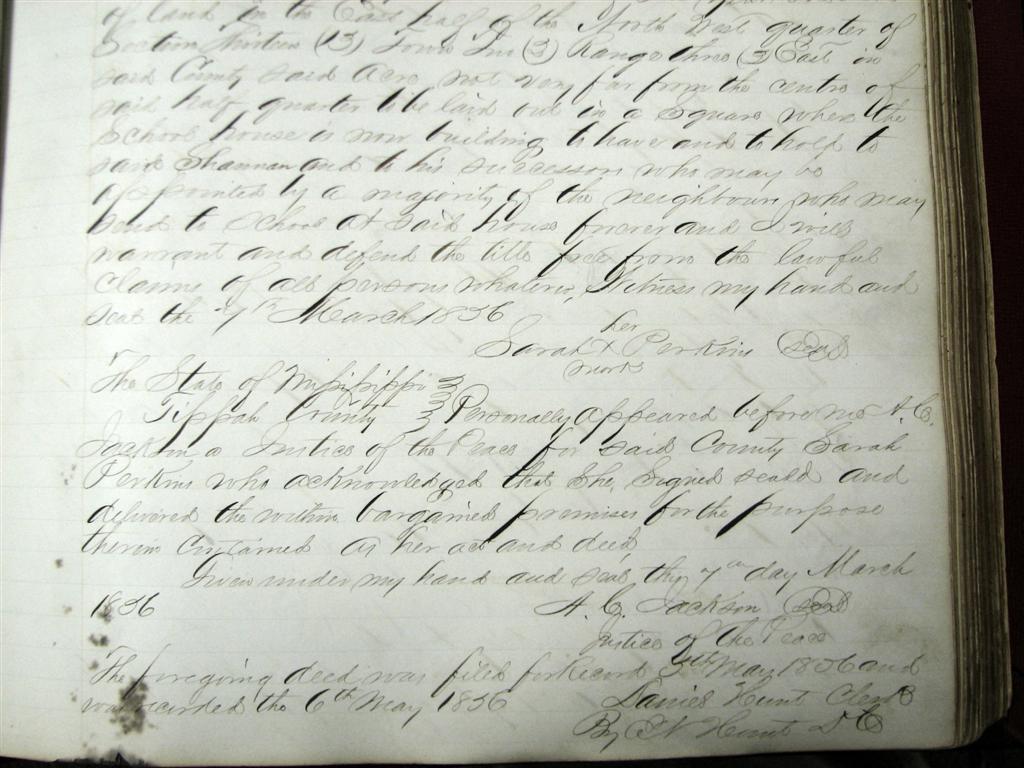 of land in the East half of the North West quarter of
Section Thirteen (13) Town Three (3) Range three (3) East in
said County said Acre not very far from the centre of
said half quarter to be laid out in a square where the
School house is now building to have and to hold to
said Shannan and to his successors who may be
appointed by a majority of the neighbours who may
send to school at said house forever and I will
warrant and defend the title free from the lawful
claims of all persons whatever, Witness my hand and
seal the 7th March 1856
her
Sarah X Perkins Seal
mark
The State of Mississippi
Tippah County Personally appeared before me A. C.
Jackson a Justice of the Peace for said County Sarah
Perkins who acknowledged that She Signed seald and
delivered the within bargained premises for the purpose
therein contained as her act and deed
Given under my hand and seal this 7th day March
1856 A. C. Jackson Seal
Justice of the Peace
The foregoing deed was filed for Record 5th May 1856 and
was recorded the 6th May 1856 Daniel Hunt Clerk
By Hunt D C